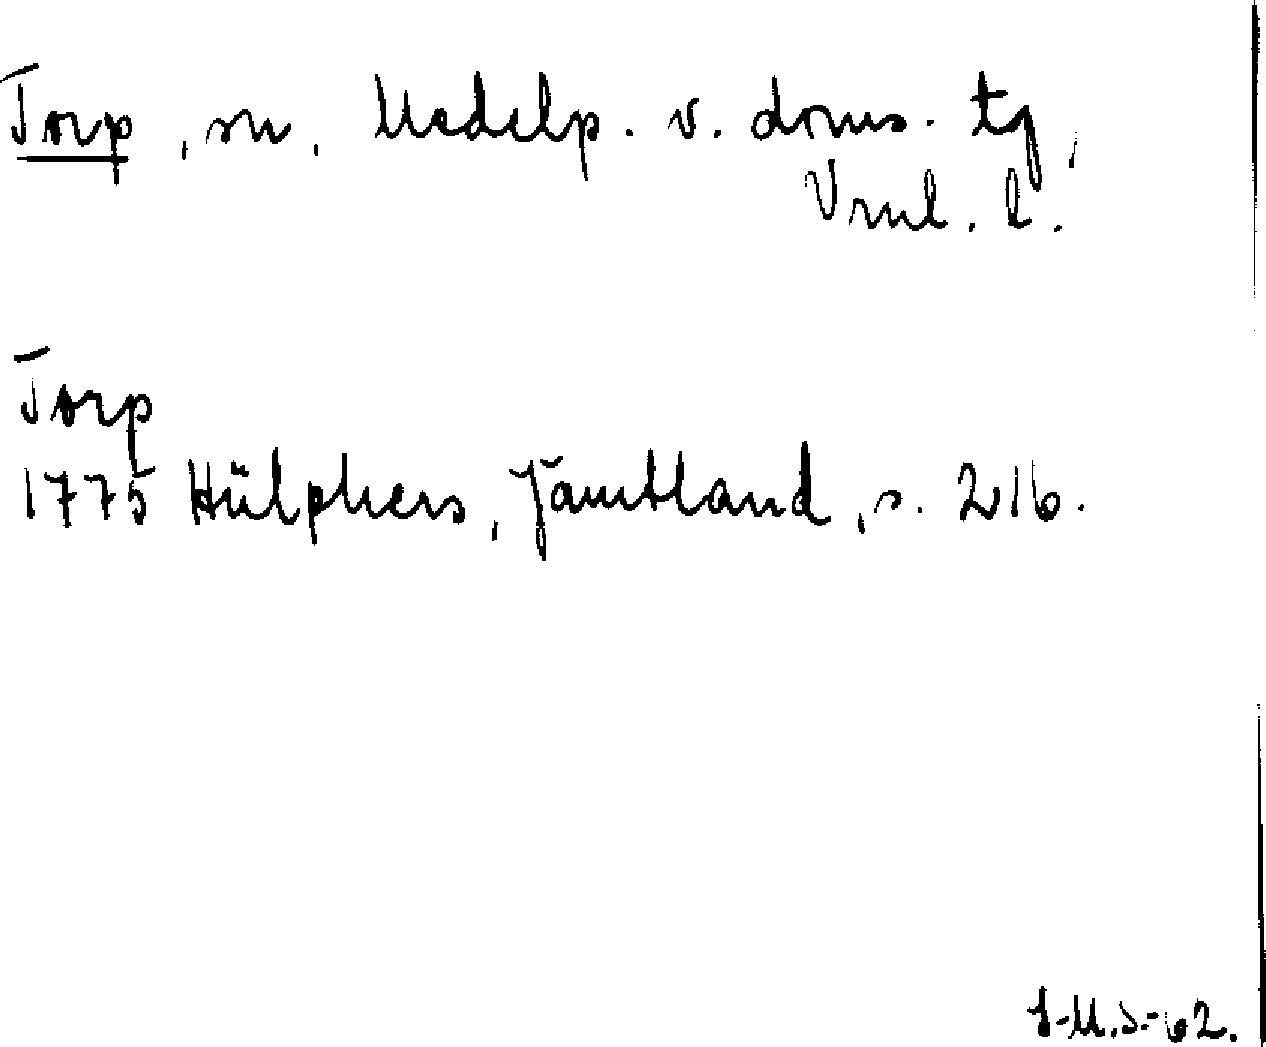 Torp, sn, Medelp. v. doms. tg,
Vrnl. l.
Torp
1775 Hülphers, Jämtland, s. 216.
J-M.S.-62.